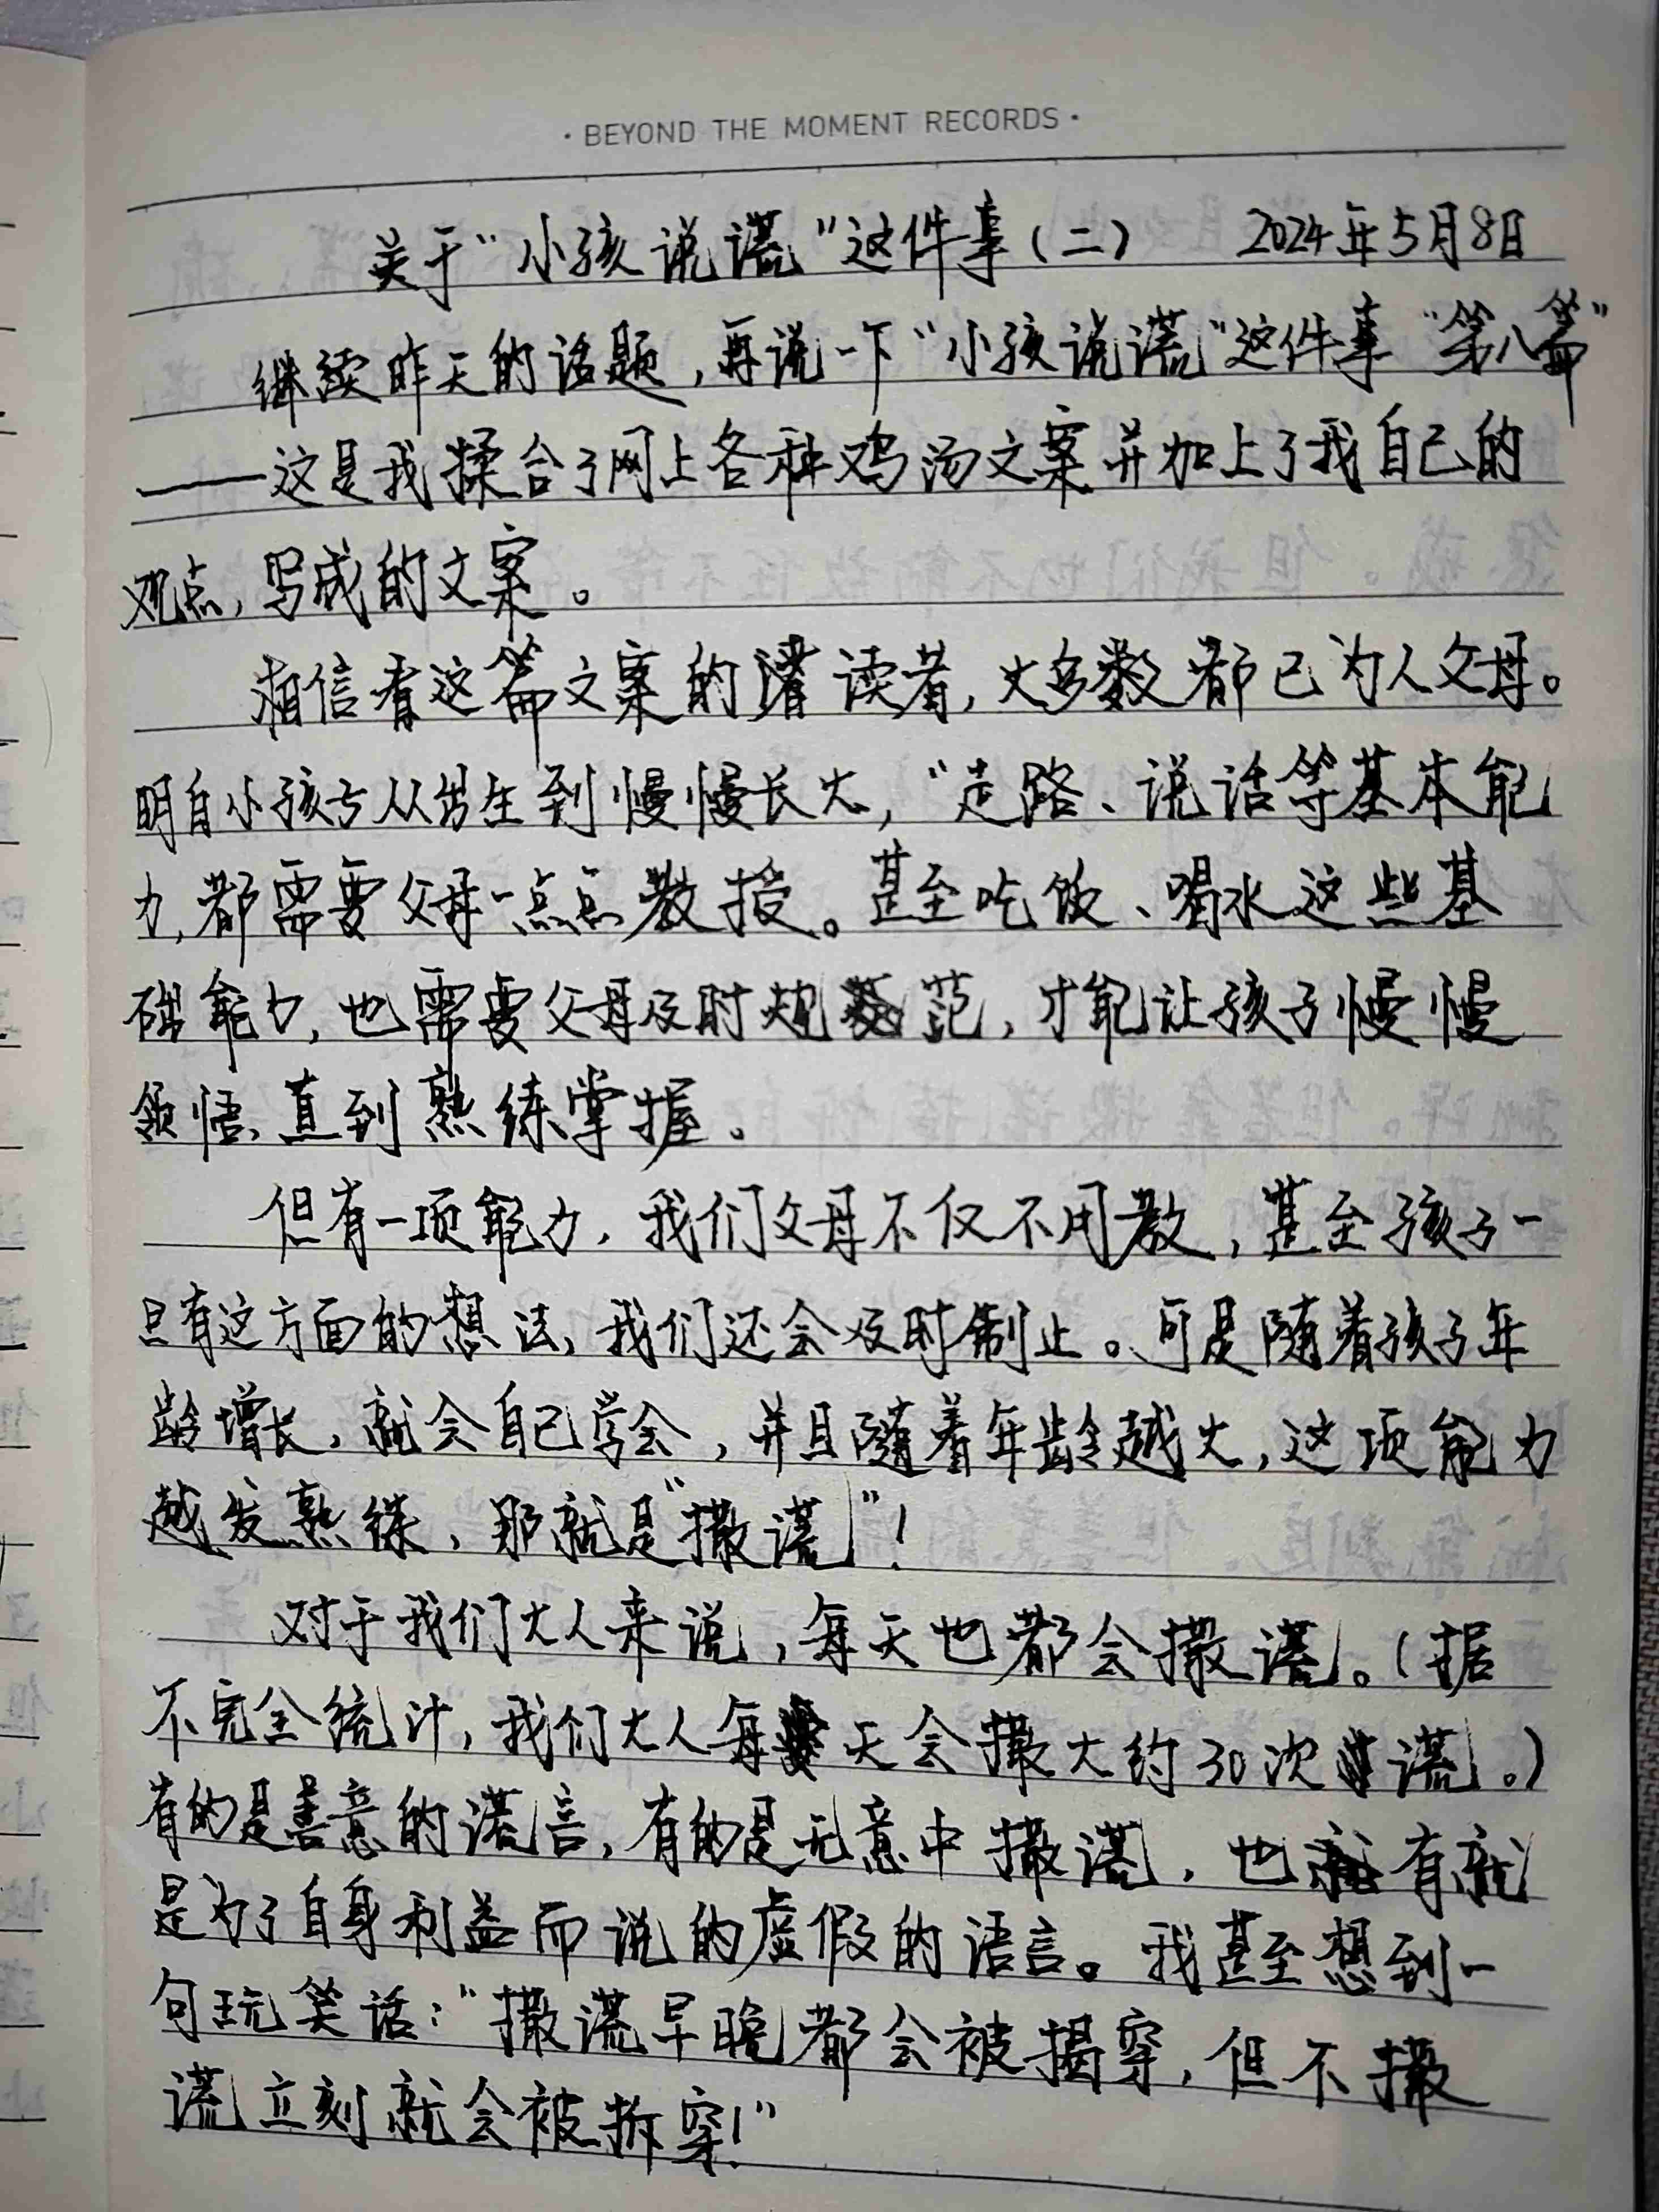 · BEYOND THE MOMENT RECORDS ·
关于“小孩说谎”这件事(二) 2024年5月8日
继续昨天的话题,再说一下“小孩说谎”这件事“第八篇”
——这是我揉合了网上各种鸡汤文案并加上了我自己的
观点,写成的文案。
相信看这篇文案的读者,大多数都已为人父母。
明白小孩子从出生到慢慢长大,“走路、说话等基本能
力,都需要父母一点点教授。甚至吃饭、喝水这些基
础能力,也需要父母及时规范,才能让孩子慢慢
领悟、直到熟练掌握。
但有一项能力,我们父母不仅不用教,甚至孩子一
旦有这方面的想法,我们还会及时制止。可是随着孩子年
龄增长,就会自己学会,并且随着年龄越大,这项能力
越发熟练,那就是“撒谎”!
对于我们大人来说,每天也都会撒谎。(据
不完全统计,我们大人每天会撒大约30次谎。)
有的是善意的谎言,有的是无意中撒谎,也有就
是为了自身利益而说的虚假的语言。我甚至想到一
句玩笑话:“撒谎早晚都会被揭穿,但不撒
谎立刻就会被拆穿!”